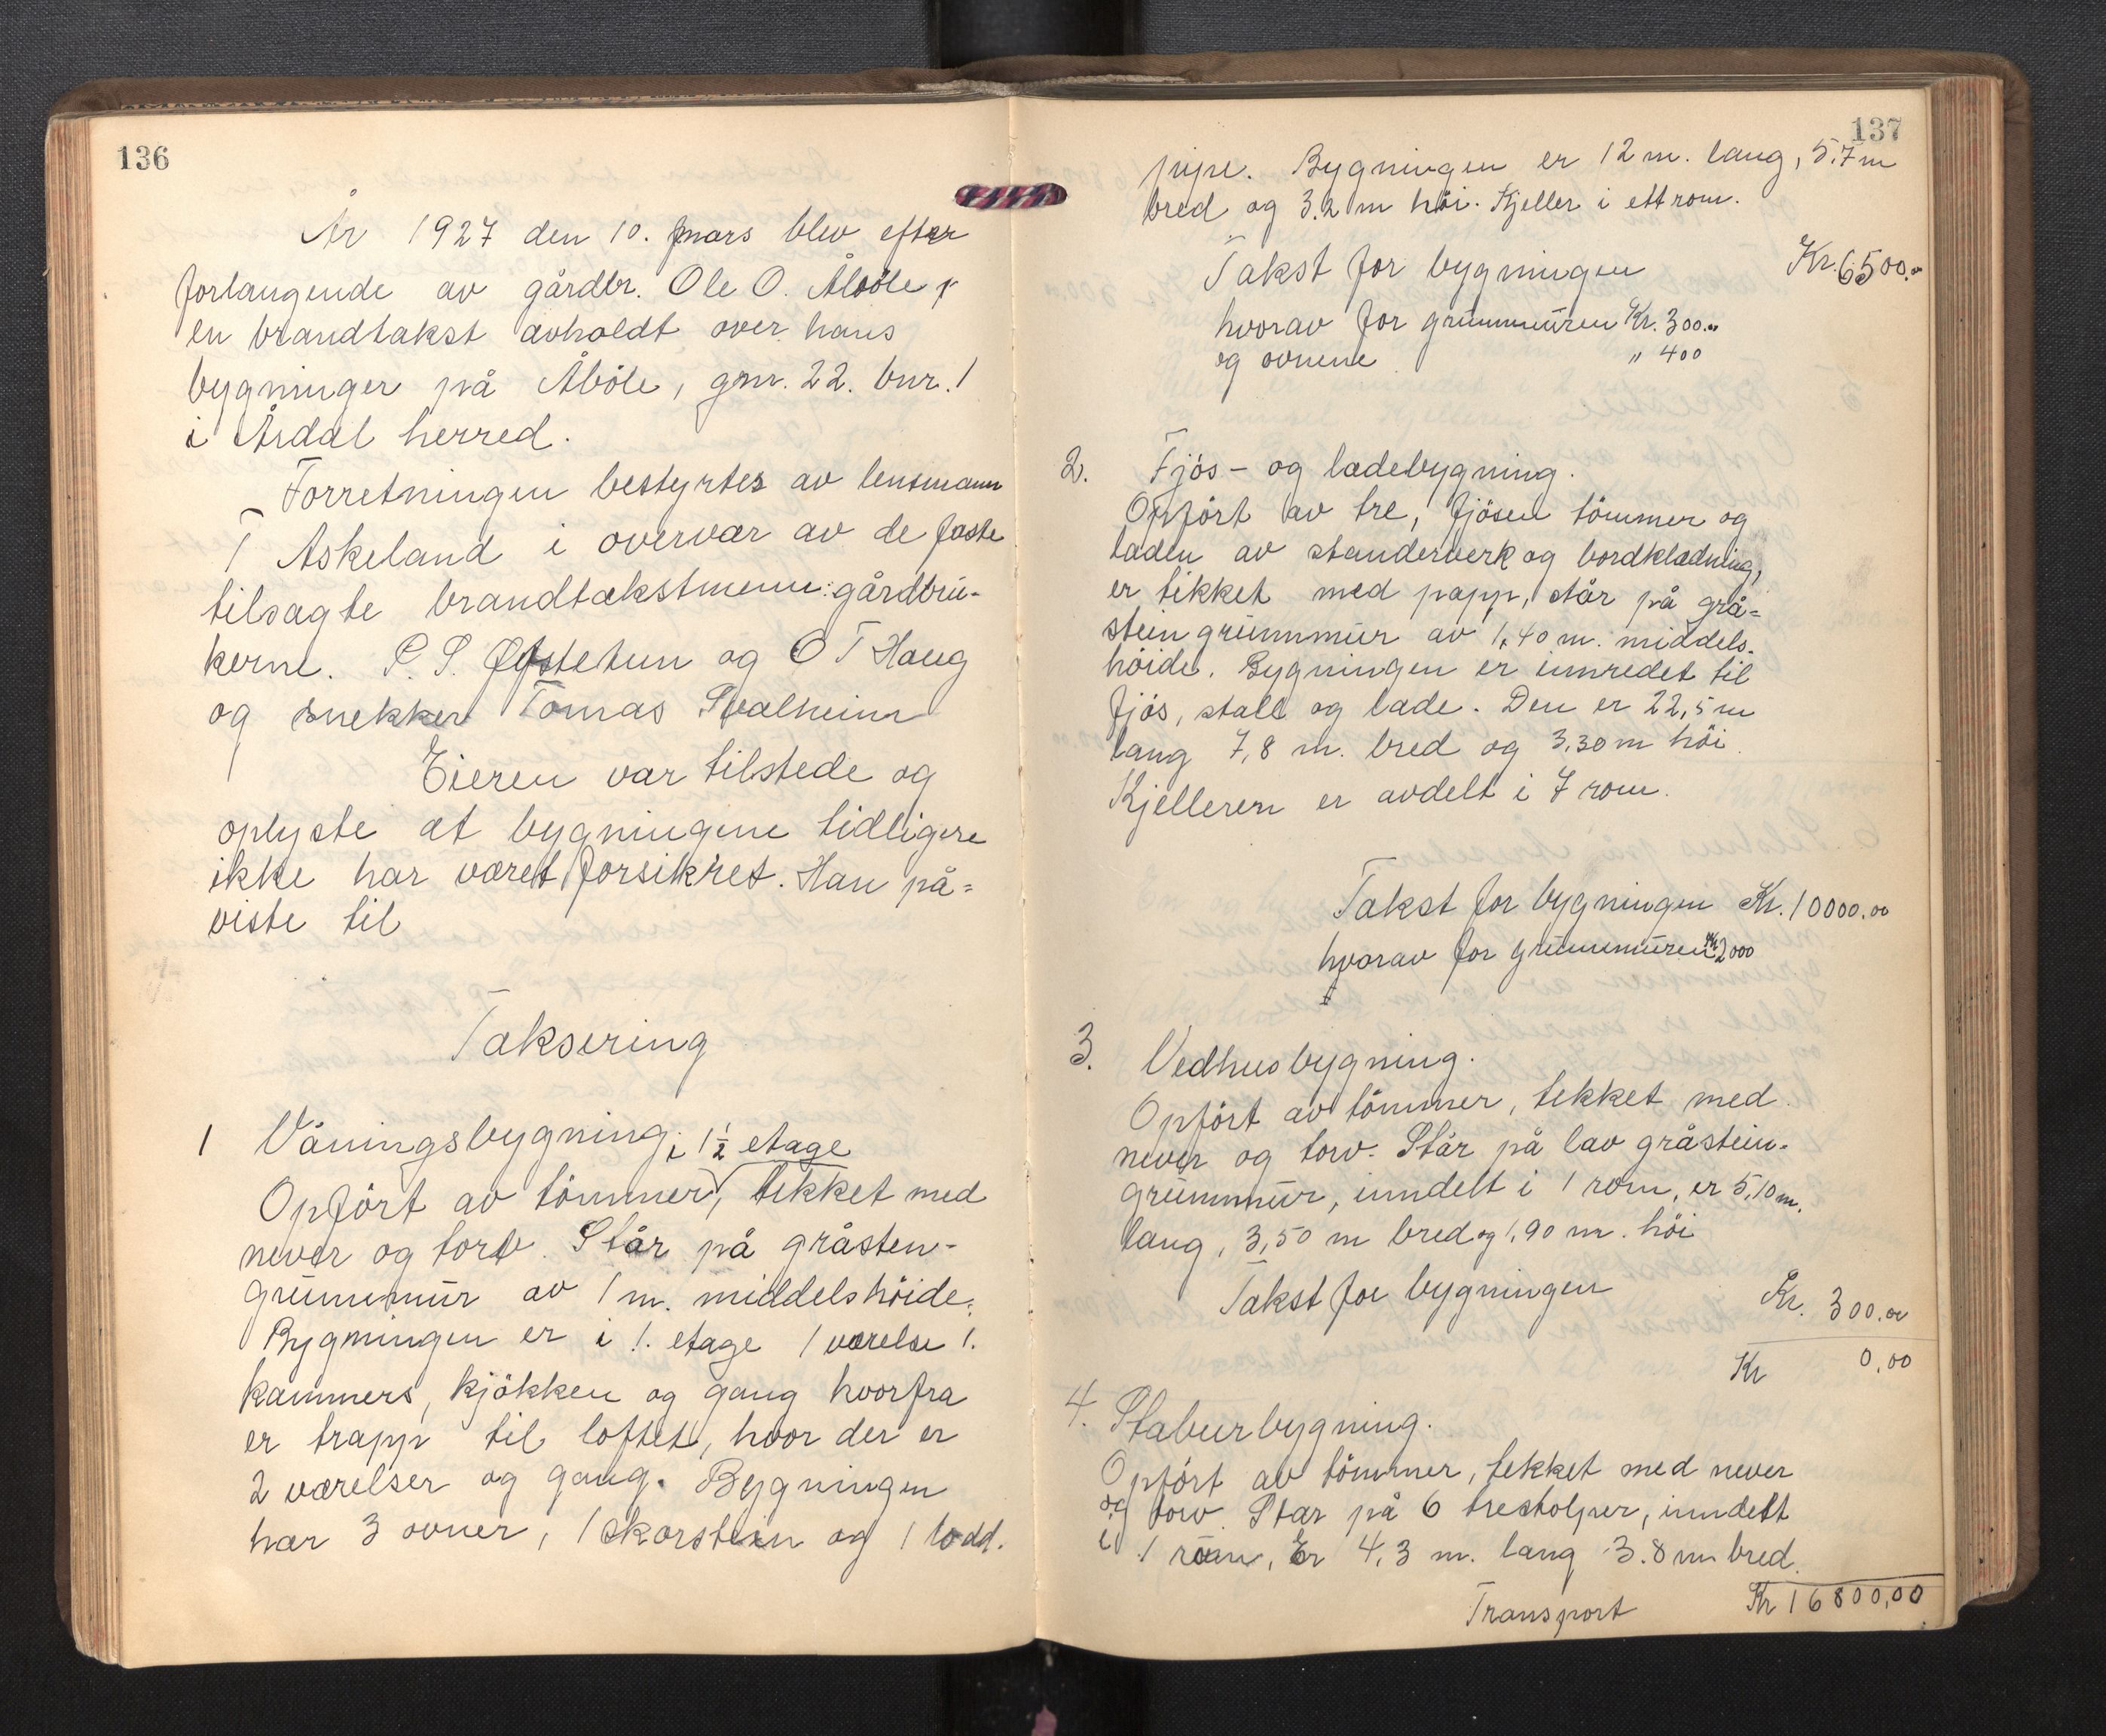 136
År 1927 den 10. mars blev efter
forlangende av gårdbr. Ole O. Åböle
en brandtakst avholdt over hans
bygninger på Åböle, gnr. 22. bnr. 1
i Årdal herred.
Forretningen bestyrtes av lensmann
T Askeland i overvær av de faste
tilsagte brandtakstmenn: gårdbru-
kerne. P. S. Øystetun og O T Haug
og snekker Tomas Svalheim
Eieren var tilstede og
oplyste at bygningene tidligere
ikke har været forsikret. Han på=
viste til
Taksering
1 Våningsbygning i 1½ etage
Opført av tömmer, tekket med
never og torv. Står på gråsten-
grünnmür av 1 m. middelshöide.
Bygningen er i 1. etage 1 værelse 1.
kammers, kjökken og gang hvorfra
er trapp til loftet, hvor der er
2 værelser og gang. Bygningen
har 3 ovner, 1 skorstein og 1 lodd.
137
pipe. Bygningen er 12 m. lang, 5.7 m
bred og 3.2 m höi. Kjeller i ett rom.
Takst for bygningen Kr. 6500.00
hvorav for grünnmüren Kr. 300.00
og ovnene " 400
2. Fjös- og ladebygning.
Opfört av tre, fjösen tömmer og
laden av standerverk og bordklædning,
er tekket med papp, står på grå=
stein grünnmür av 1,40 m. middels-
höide. Bygningen er innredet til
fjös, stall og lade. Den er 22,5 m
lang 7,8 m. bred og 3,30 m höi.
Kjelleren er avdelt i 7 rom.
Takst for bygningen Kr. 10000.00
hvorav for grünnmüren Kr 2000
3. Vedhusbygning.
Opfört av tömmer, tekket med
never og torv. Står på lav gråstein-
grünnmür, inndelt i 1 rom, er 5,10 m.
lang, 3,50 m bred og 1,90 m. höi
Takst for bygningen Kr. 300.00
Kr 0,00
4. Staburbygning.
Opfört av tömmer, tekket med never
og torv. Står på 6 trestolper, inndelt
i 1 rom, Er 4,3 m. lang 3.8 m bred.
Transport Kr 16800,00